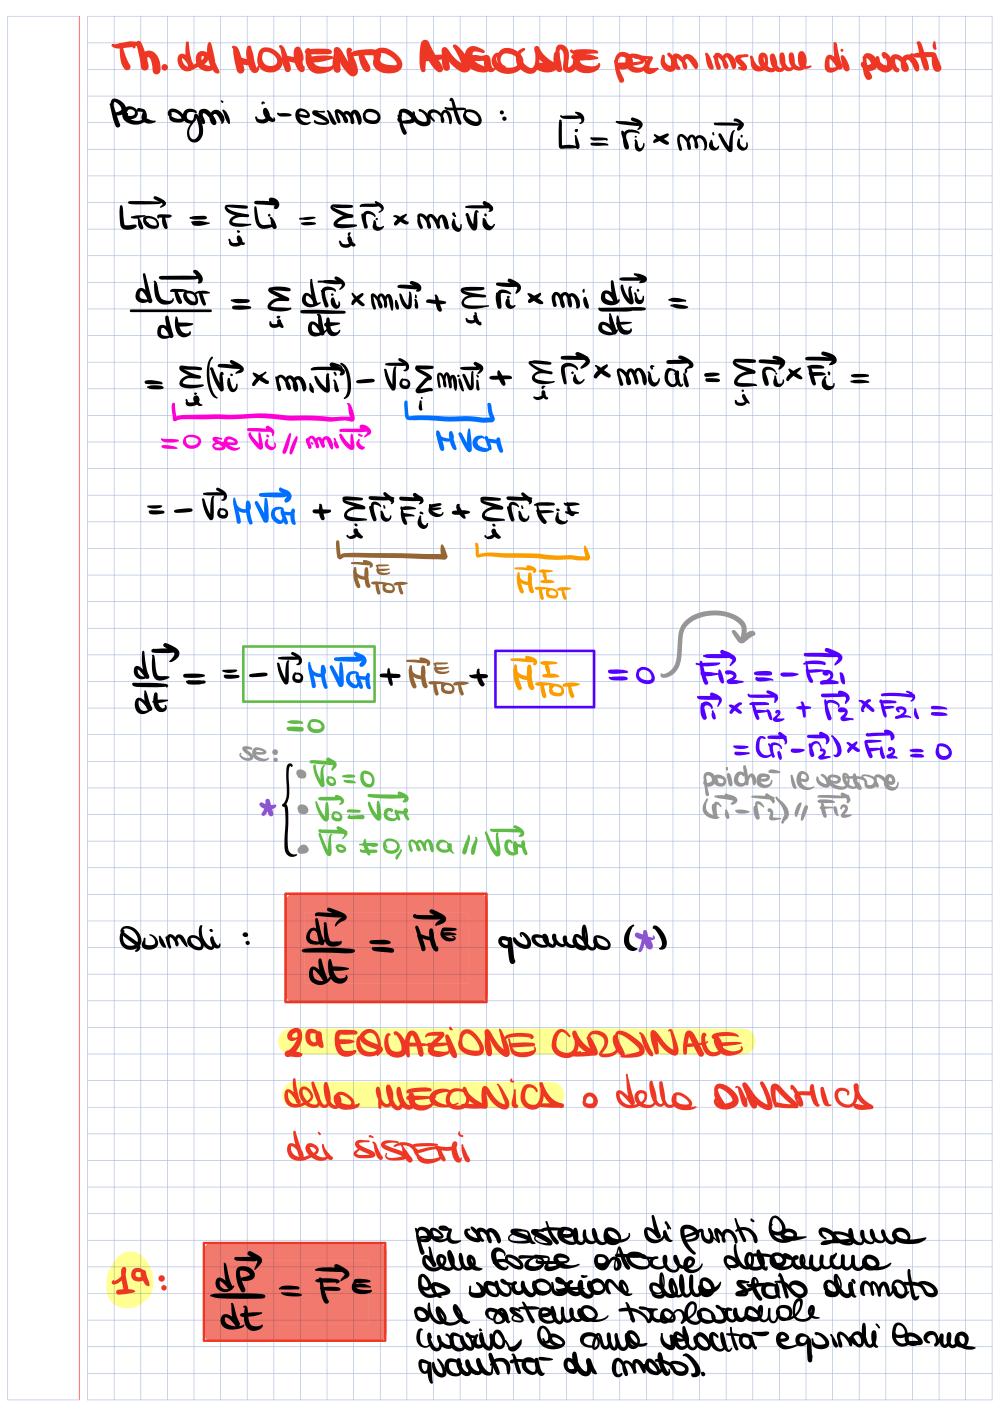 Th. del MOMENTO ANGOLARE per un insieme di punti
Per ogni i-esimo punto : L⃗i = r⃗i × miv⃗i
L⃗TOT = Σi L⃗i = Σi r⃗i × miv⃗i
dL⃗TOT/dt = Σi dr⃗i/dt × miv⃗i + Σi r⃗i × mi dv⃗i/dt =
= Σi(v⃗i × miv⃗i) - v⃗o Σi miv⃗i + Σi r⃗i × mi a⃗i = Σi r⃗i × F⃗i =
=0 se v⃗i // miv⃗i MVCM
= - v⃗o Mv⃗CM + Σi r⃗i F⃗iᴱ + Σi r⃗i Fiᴵ
M⃗ᴱTOT M⃗ᴵTOT
dL⃗/dt = = - v⃗o Mv⃗CM + M⃗ᴱTOT + M⃗ᴵTOT = 0 F⃗12 = - F⃗21
r⃗1 × F⃗12 + r⃗2 × F⃗21 =
= (r⃗1 - r⃗2) × F⃗12 = 0
poiché le vettore
(r⃗1 - r⃗2) // F⃗12
=0
se:
• v⃗o = 0
* • v⃗o = v⃗CM
• v⃗o ≠ 0, ma // v⃗CM
Quindi : dL⃗/dt = M⃗ᴱ quando (*)
2ª EQUAZIONE CARDINALE
della MECCANICA o della DINAMICA
dei SISTEMI
1ª: dP⃗/dt = F⃗ᴱ
per un sistema di punti la somma
delle forze esterne determina
la variazione dello stato di moto
del sistema traslazionale
(varia la sua velocità e quindi la sua
quantità di moto).